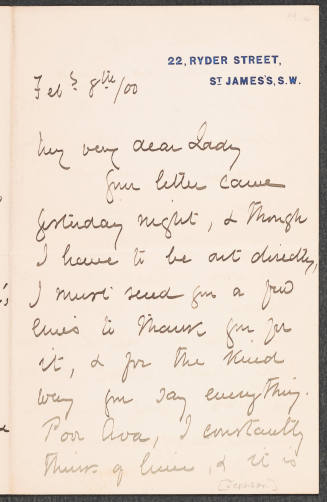 22, RYDER STREET,
ST JAMES'S, S.W.
Feby 8th/00
My very dear Lady
Your letter came
yesterday night, & though
I have to be out directly,
I must send you a few
lines to thank you for
it, & for the kind
way you say everything.
Poor Ava, I constantly
think of him, & it is